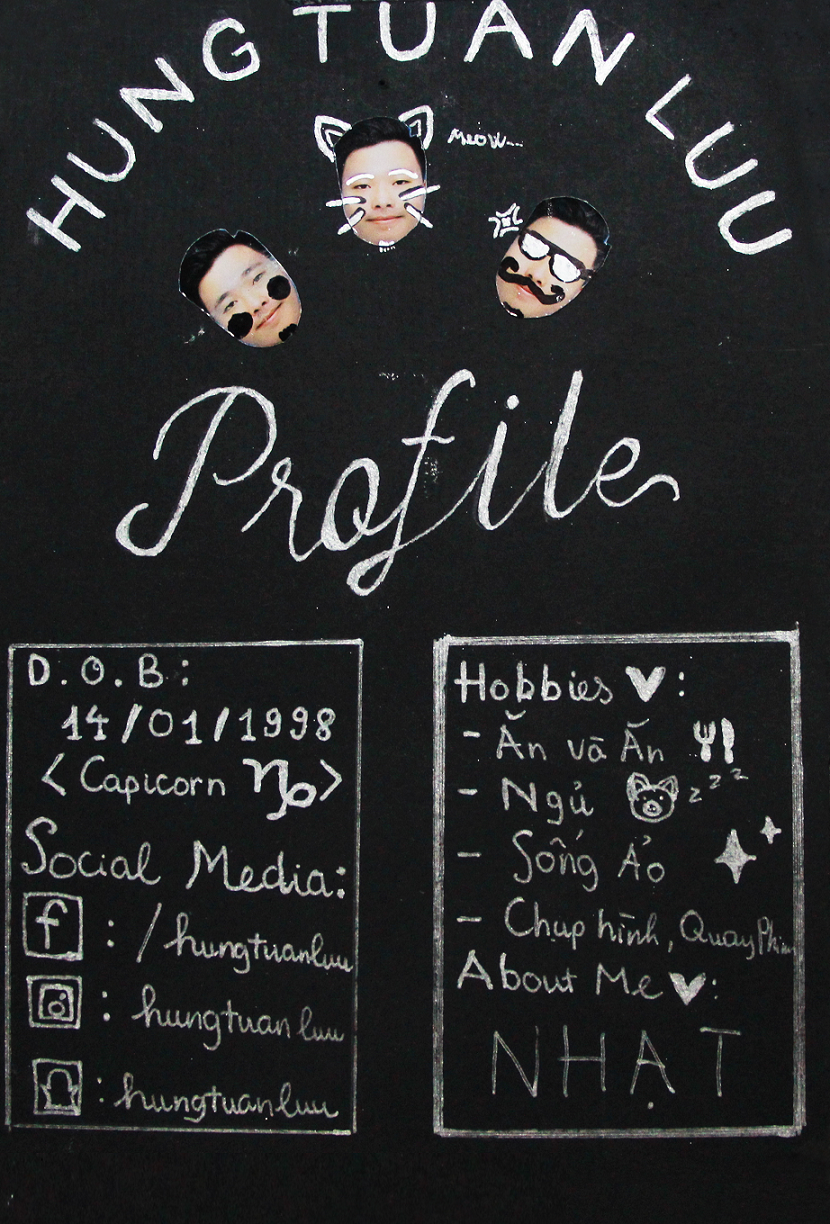 HUNG TUAN LUU
Meow...
Profile
D.O.B:
14/01/1998
<Capicorn ♑>
Social Media:
f : /hungtuanluu
: hungtuanluu
: hungtuanluu
Hobbies ♥:
- Ăn và Ăn
- Ngủ zzz
- Sống Ảo
- Chụp hình, Quay Phim
About Me ♥:
NHẠT